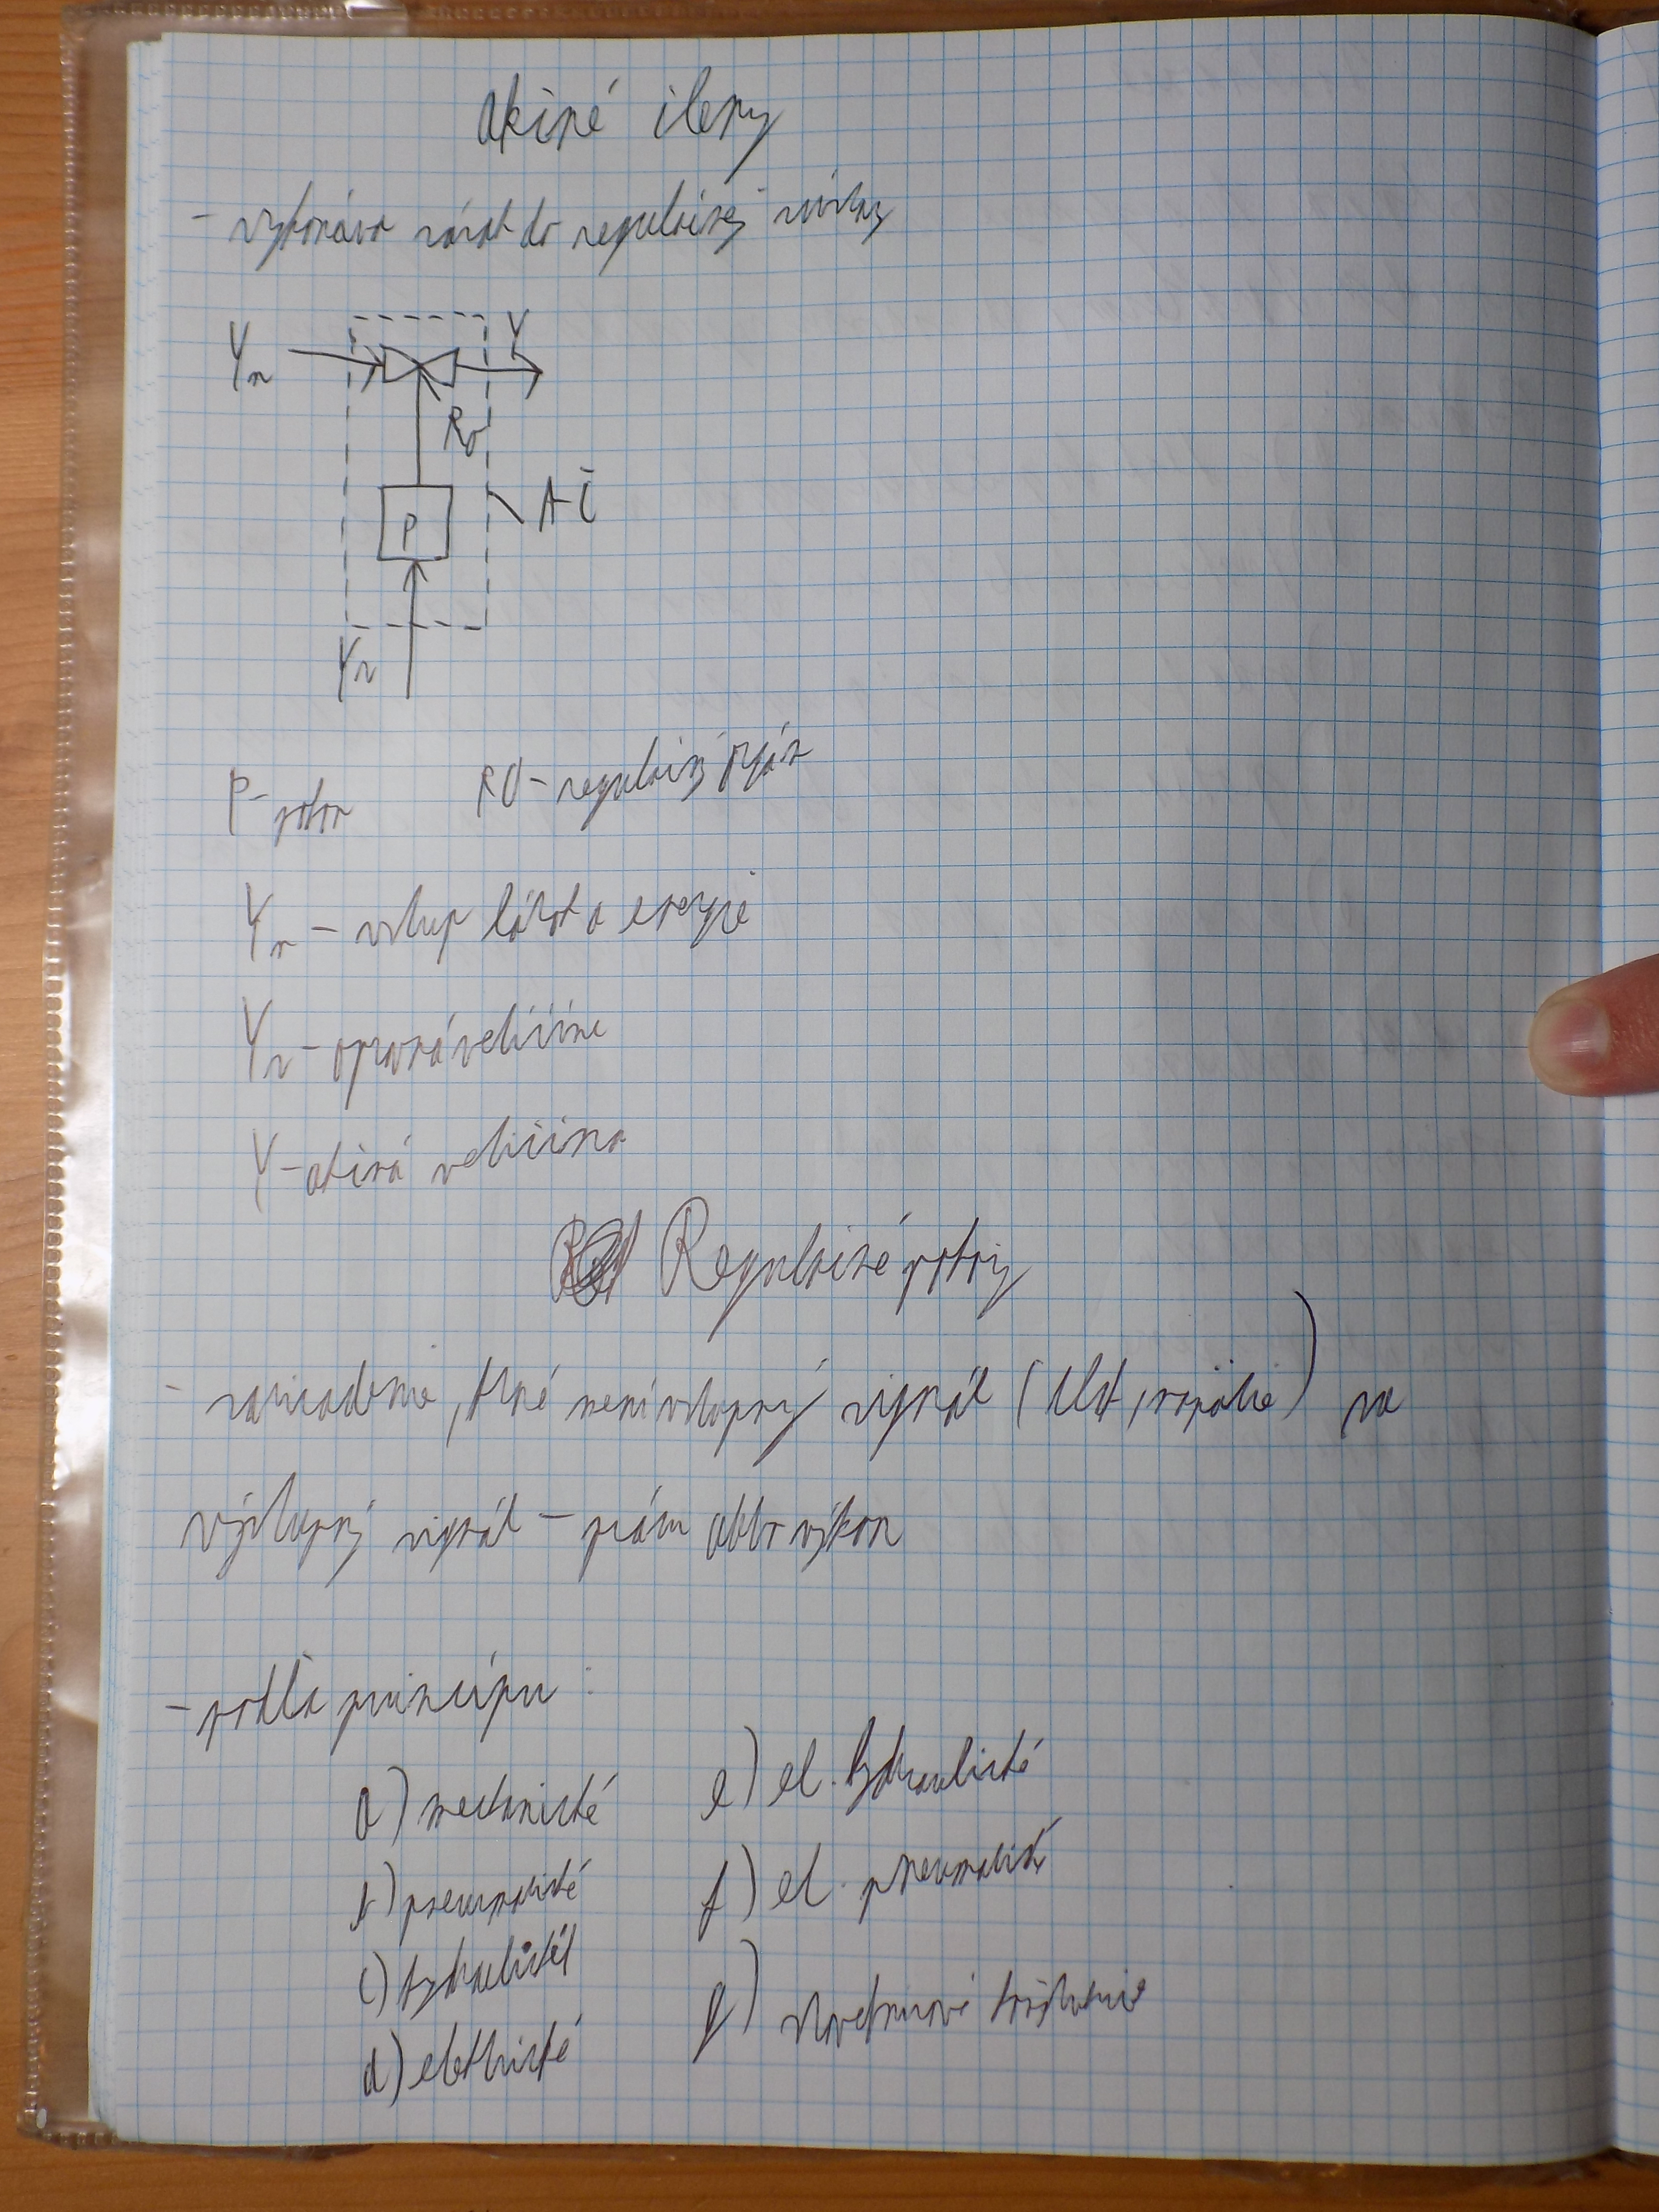 Akčné členy
- vykonáva zásah do regulačnej sústavy
Yn
Y
RO
P
AČ
Yr
P - pohon RO - regulačný orgán
Yn - vstup látok a energie
Yr - opravná veličina
Y - akčná veličina
Regulačné pohony
- zariadenie, ktoré mení vstupný signál (tlak, napätie) na
výstupný signál - prácu alebo výkon
- podľa princípu:
a) mechanické
b) pneumatické
c) hydraulické
d) elektrické
e) el. hydraulické
f) el. pneumatické
g)